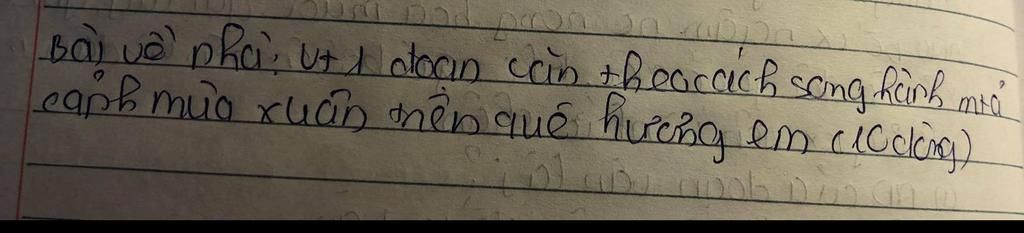 Bài về nhà: Vt 1 đoạn văn theo cách song hành mtả
cảnh mùa xuân trên quê hương em (10 dòng)